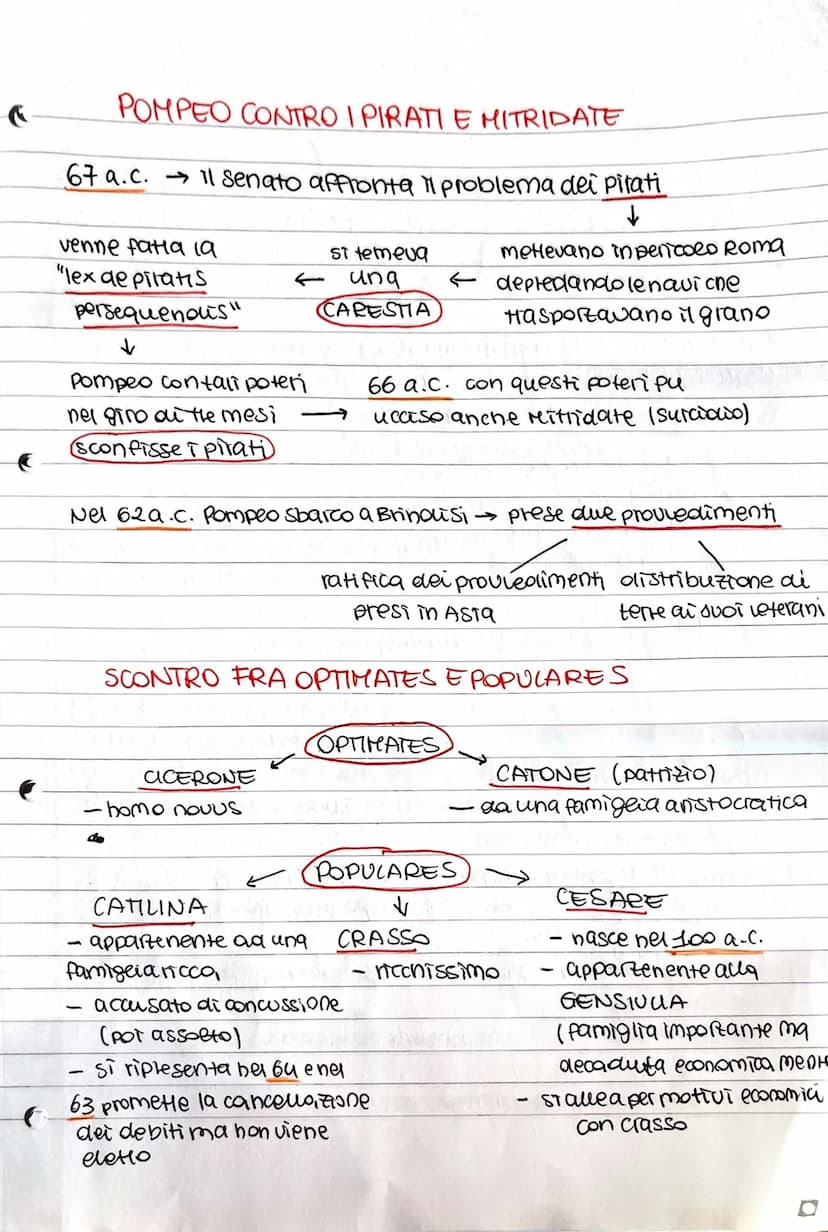 POMPEO CONTRO I PIRATI E MITRIDATE
67 a.c. → Il senato affronta il problema dei pirati
↓
mettevano in pericolo Roma
depredando le navi che
trasportavano il grano
←
si temeva
una
CARESTIA
←
venne fatta la
"lex de piratis
persequendis"
↓
Pompeo con tali poteri
nel giro di tre mesi →
sconfisse i pirati
66 a.c. con questi poteri fu
ucciso anche Mitridate (suicidio)
Nel 62 a.c. Pompeo sbarcò a Brindisi → prese due provvedimenti
ratifica dei provvedimenti
presi in Asia
distribuzione di
terre ai suoi veterani
SCONTRO FRA OPTIMATES E POPULARES
OPTIMATES
CICERONE
- homo novus
CATONE (patrizio)
- da una famiglia aristocratica
POPULARES
CATILINA
- appartenente ad una
famiglia ricca,
- accusato di concussione
(poi assolto)
- si ripresenta nel 64 e nel
63 promette la cancellazione
dei debiti ma non viene
eletto
↓
CRASSO
- ricchissimo
CESARE
- nasce nel 100 a.c.
- appartenente alla
GENS IULIA
(famiglia importante ma
decaduta economica
- si allea per motivi economici
con crasso